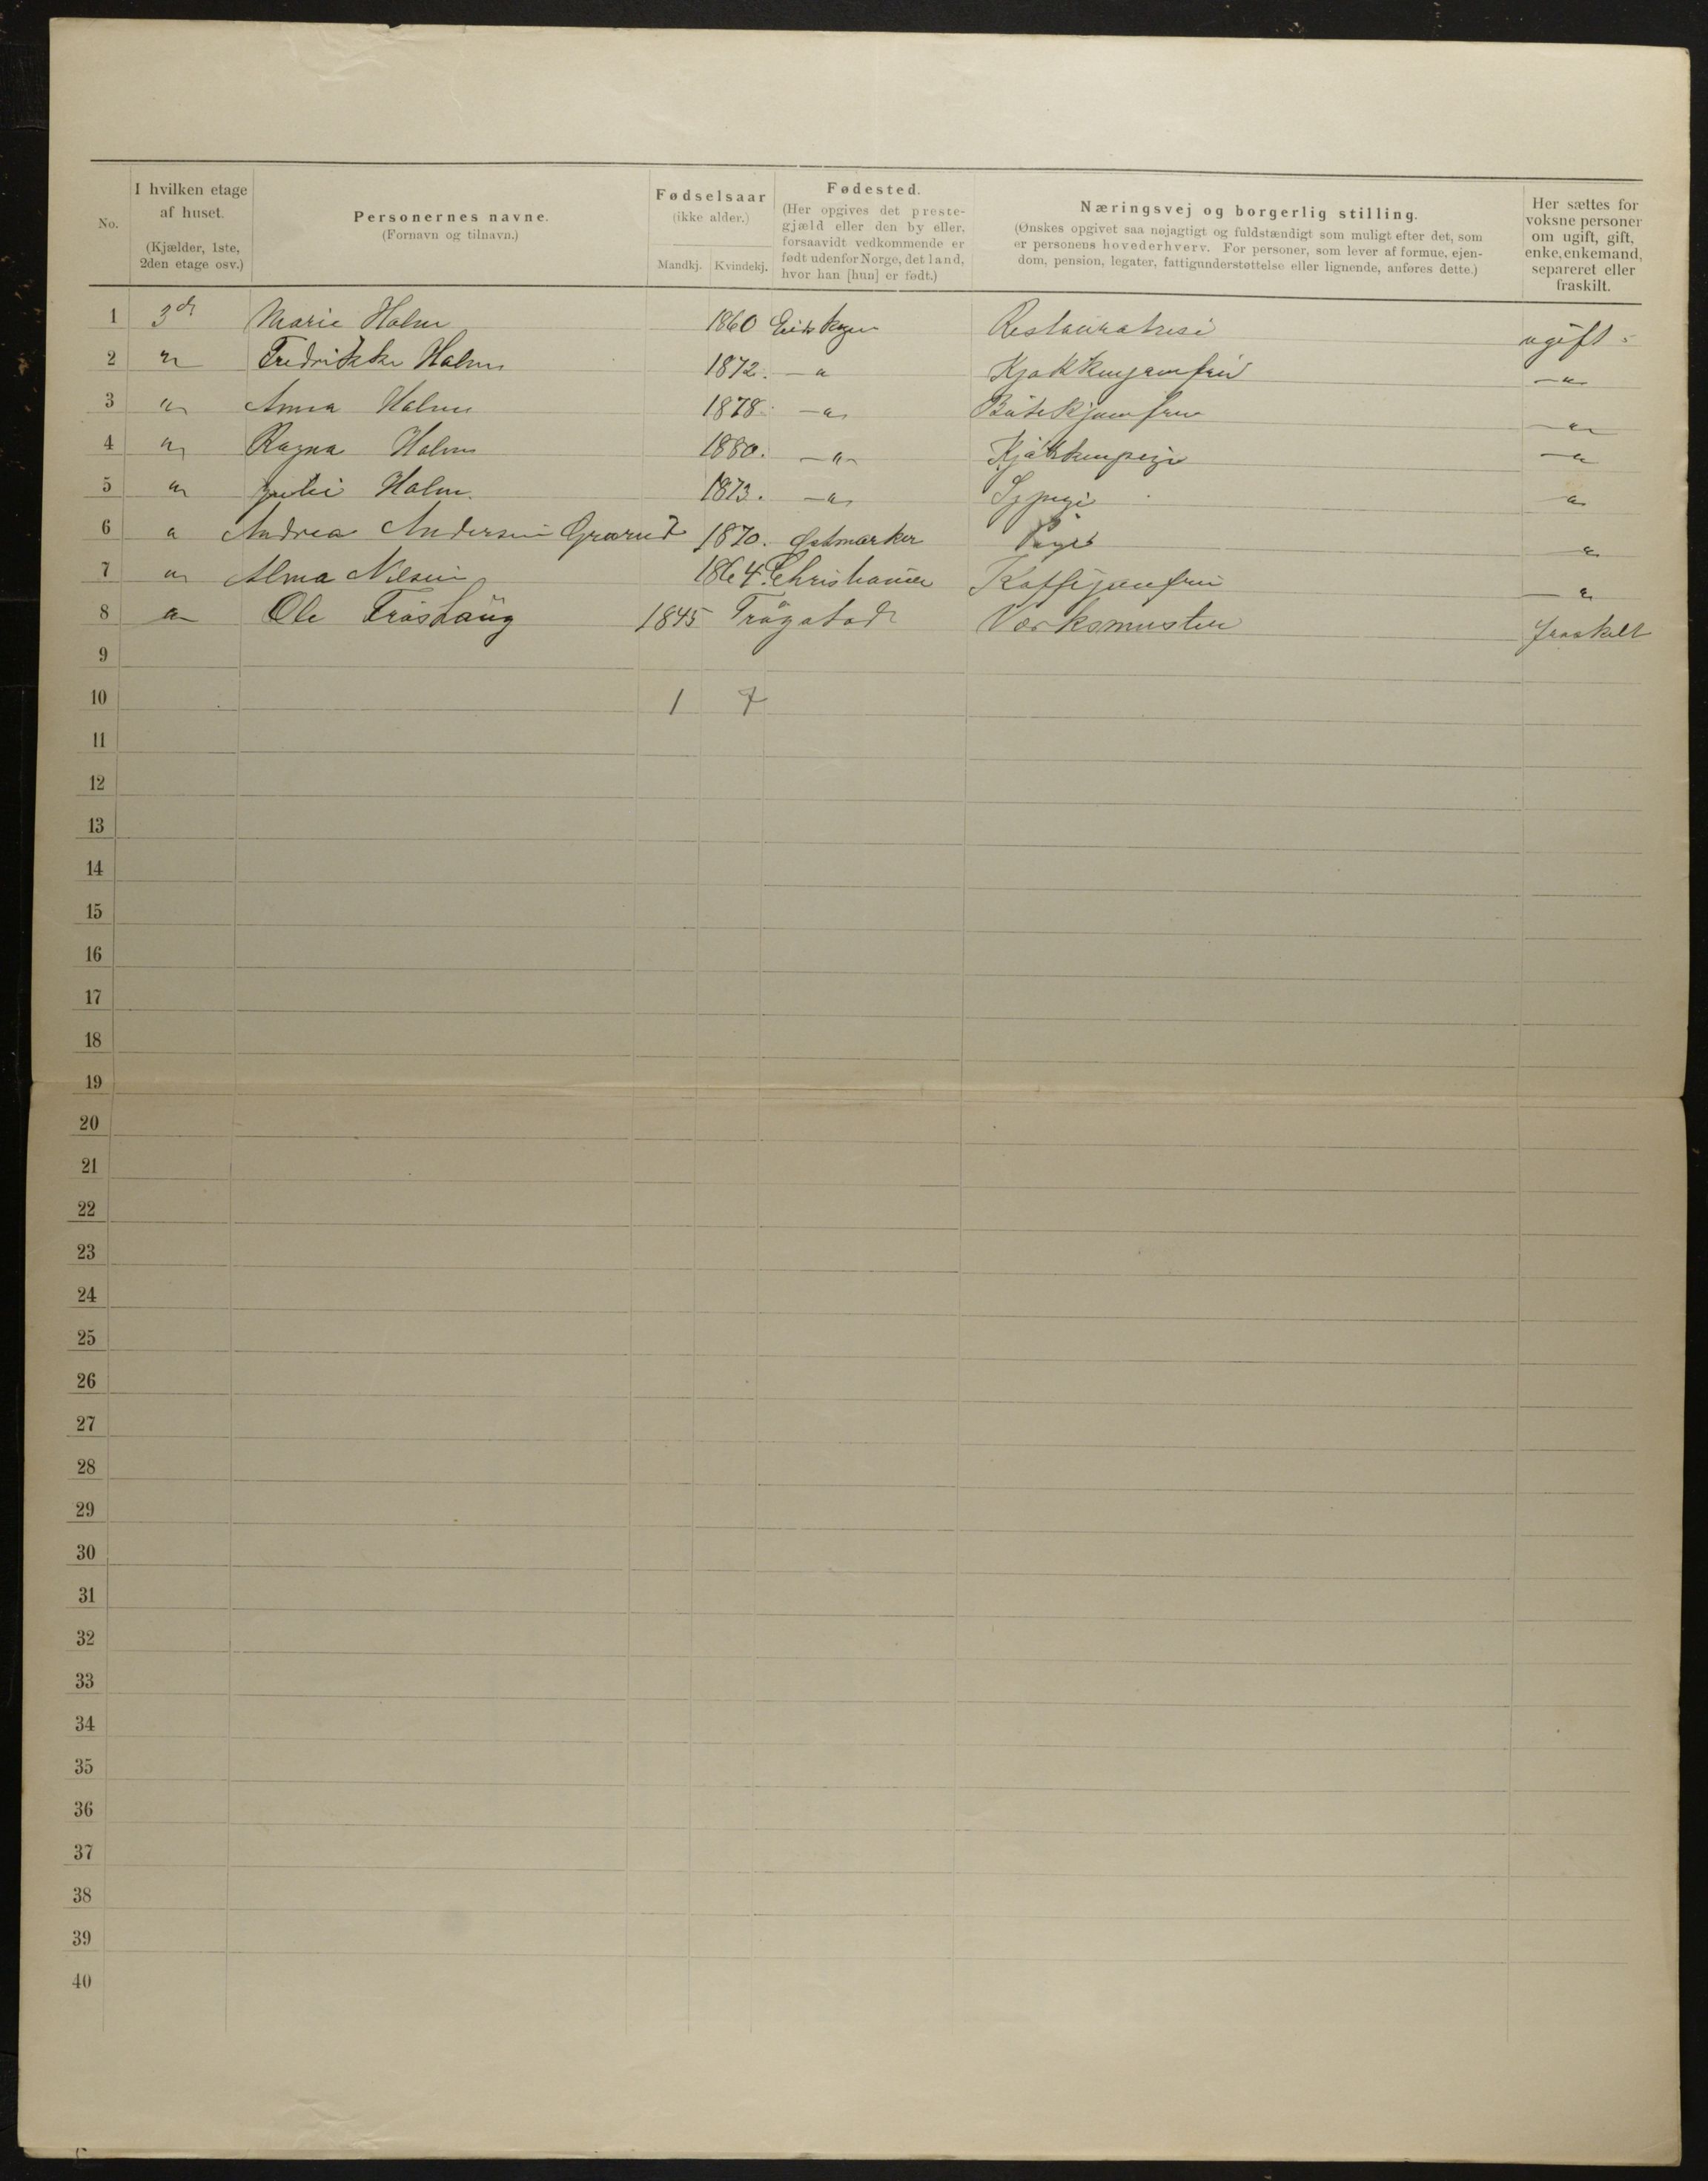 No.
I hvilken etage af huset.
(Kjælder, 1ste, 2den etage osv.)
Personernes navne.
(Fornavn og tilnavn.)
Fødselsaar
(ikke alder.)
Mandkj. Kvindekj.
Fødested.
(Her opgives det preste-
gjæld eller den by eller,
forsaavidt vedkommende er
født udenfor Norge, det land,
hvor han [hun] er født.)
Næringsvej og borgerlig stilling.
(Ønskes opgivet saa nøjagtigt og fuldstændigt som muligt efter det, som
er personens hovederhverv. For personer, som lever af formue, ejen-
dom, pension, legater, fattigunderstøttelse eller lignende, anføres dette.)
Her sættes for
voksne personer
om ugift, gift,
enke, enkemand,
separeret eller
fraskilt.
1 3d Marie Holm 1860 Restauratrise ugift
2 " Fredrikke Holm 1872. — " Kjøkkenjomfru — "
3 " Anna Holm 1878. — " — "
4 " Ragna Holm 1880. — " Kjøkkenpige — "
5 " Holm. 1873. — " Sypige "
6 " Andrea Andersen Grorud 1870. Østmarker Pige "
7 " Alma Nilsen 1864. Christiania Kaffejomfru — "
8 " Ole Frøshaug 1845 Trøgstad Værksmester fraskilt
9
10 1 7
11
12
13
14
15
16
17
18
19
20
21
22
23
24
25
26
27
28
29
30
31
32
33
34
35
36
37
38
39
40